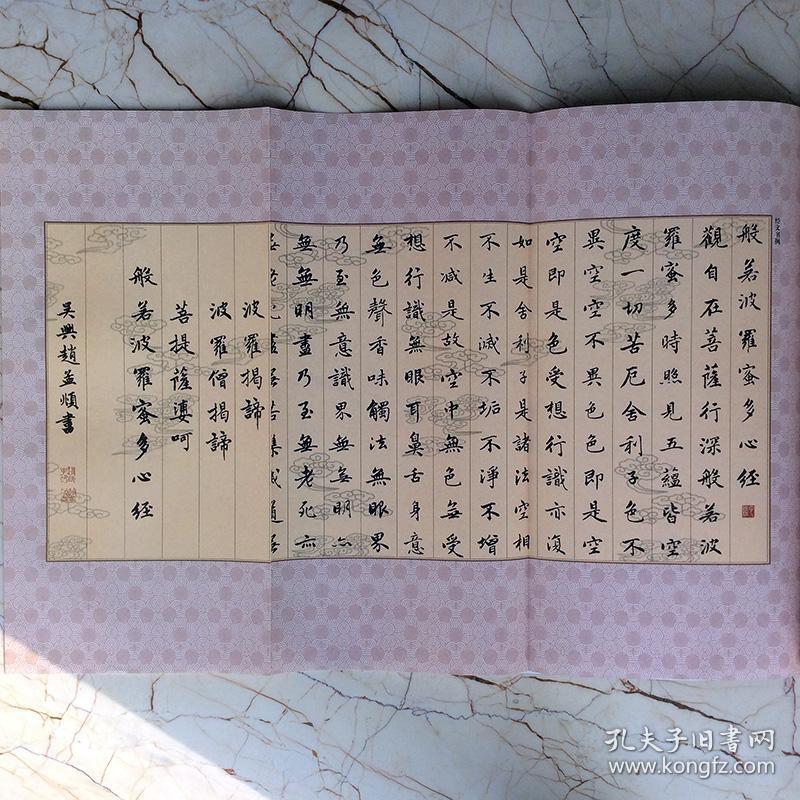 经文书例
般若波羅蜜多心經
觀自在菩薩行深般若波
羅蜜多時照見五蘊皆空
度一切苦厄舍利子色不
異空空不異色色即是空
空即是色受想行識亦復
如是舍利子是諸法空相
不生不滅不垢不淨不增
不減是故空中無色無受
想行識無眼耳鼻舌身意
無色聲香味觸法無眼界
乃至無意識界無無明亦
無無明盡乃至無老死亦
波羅揭諦
波羅僧揭諦
菩提薩婆呵
般若波羅蜜多心經
吳興趙孟頫書
孔夫子旧书网
www.kongfz.com